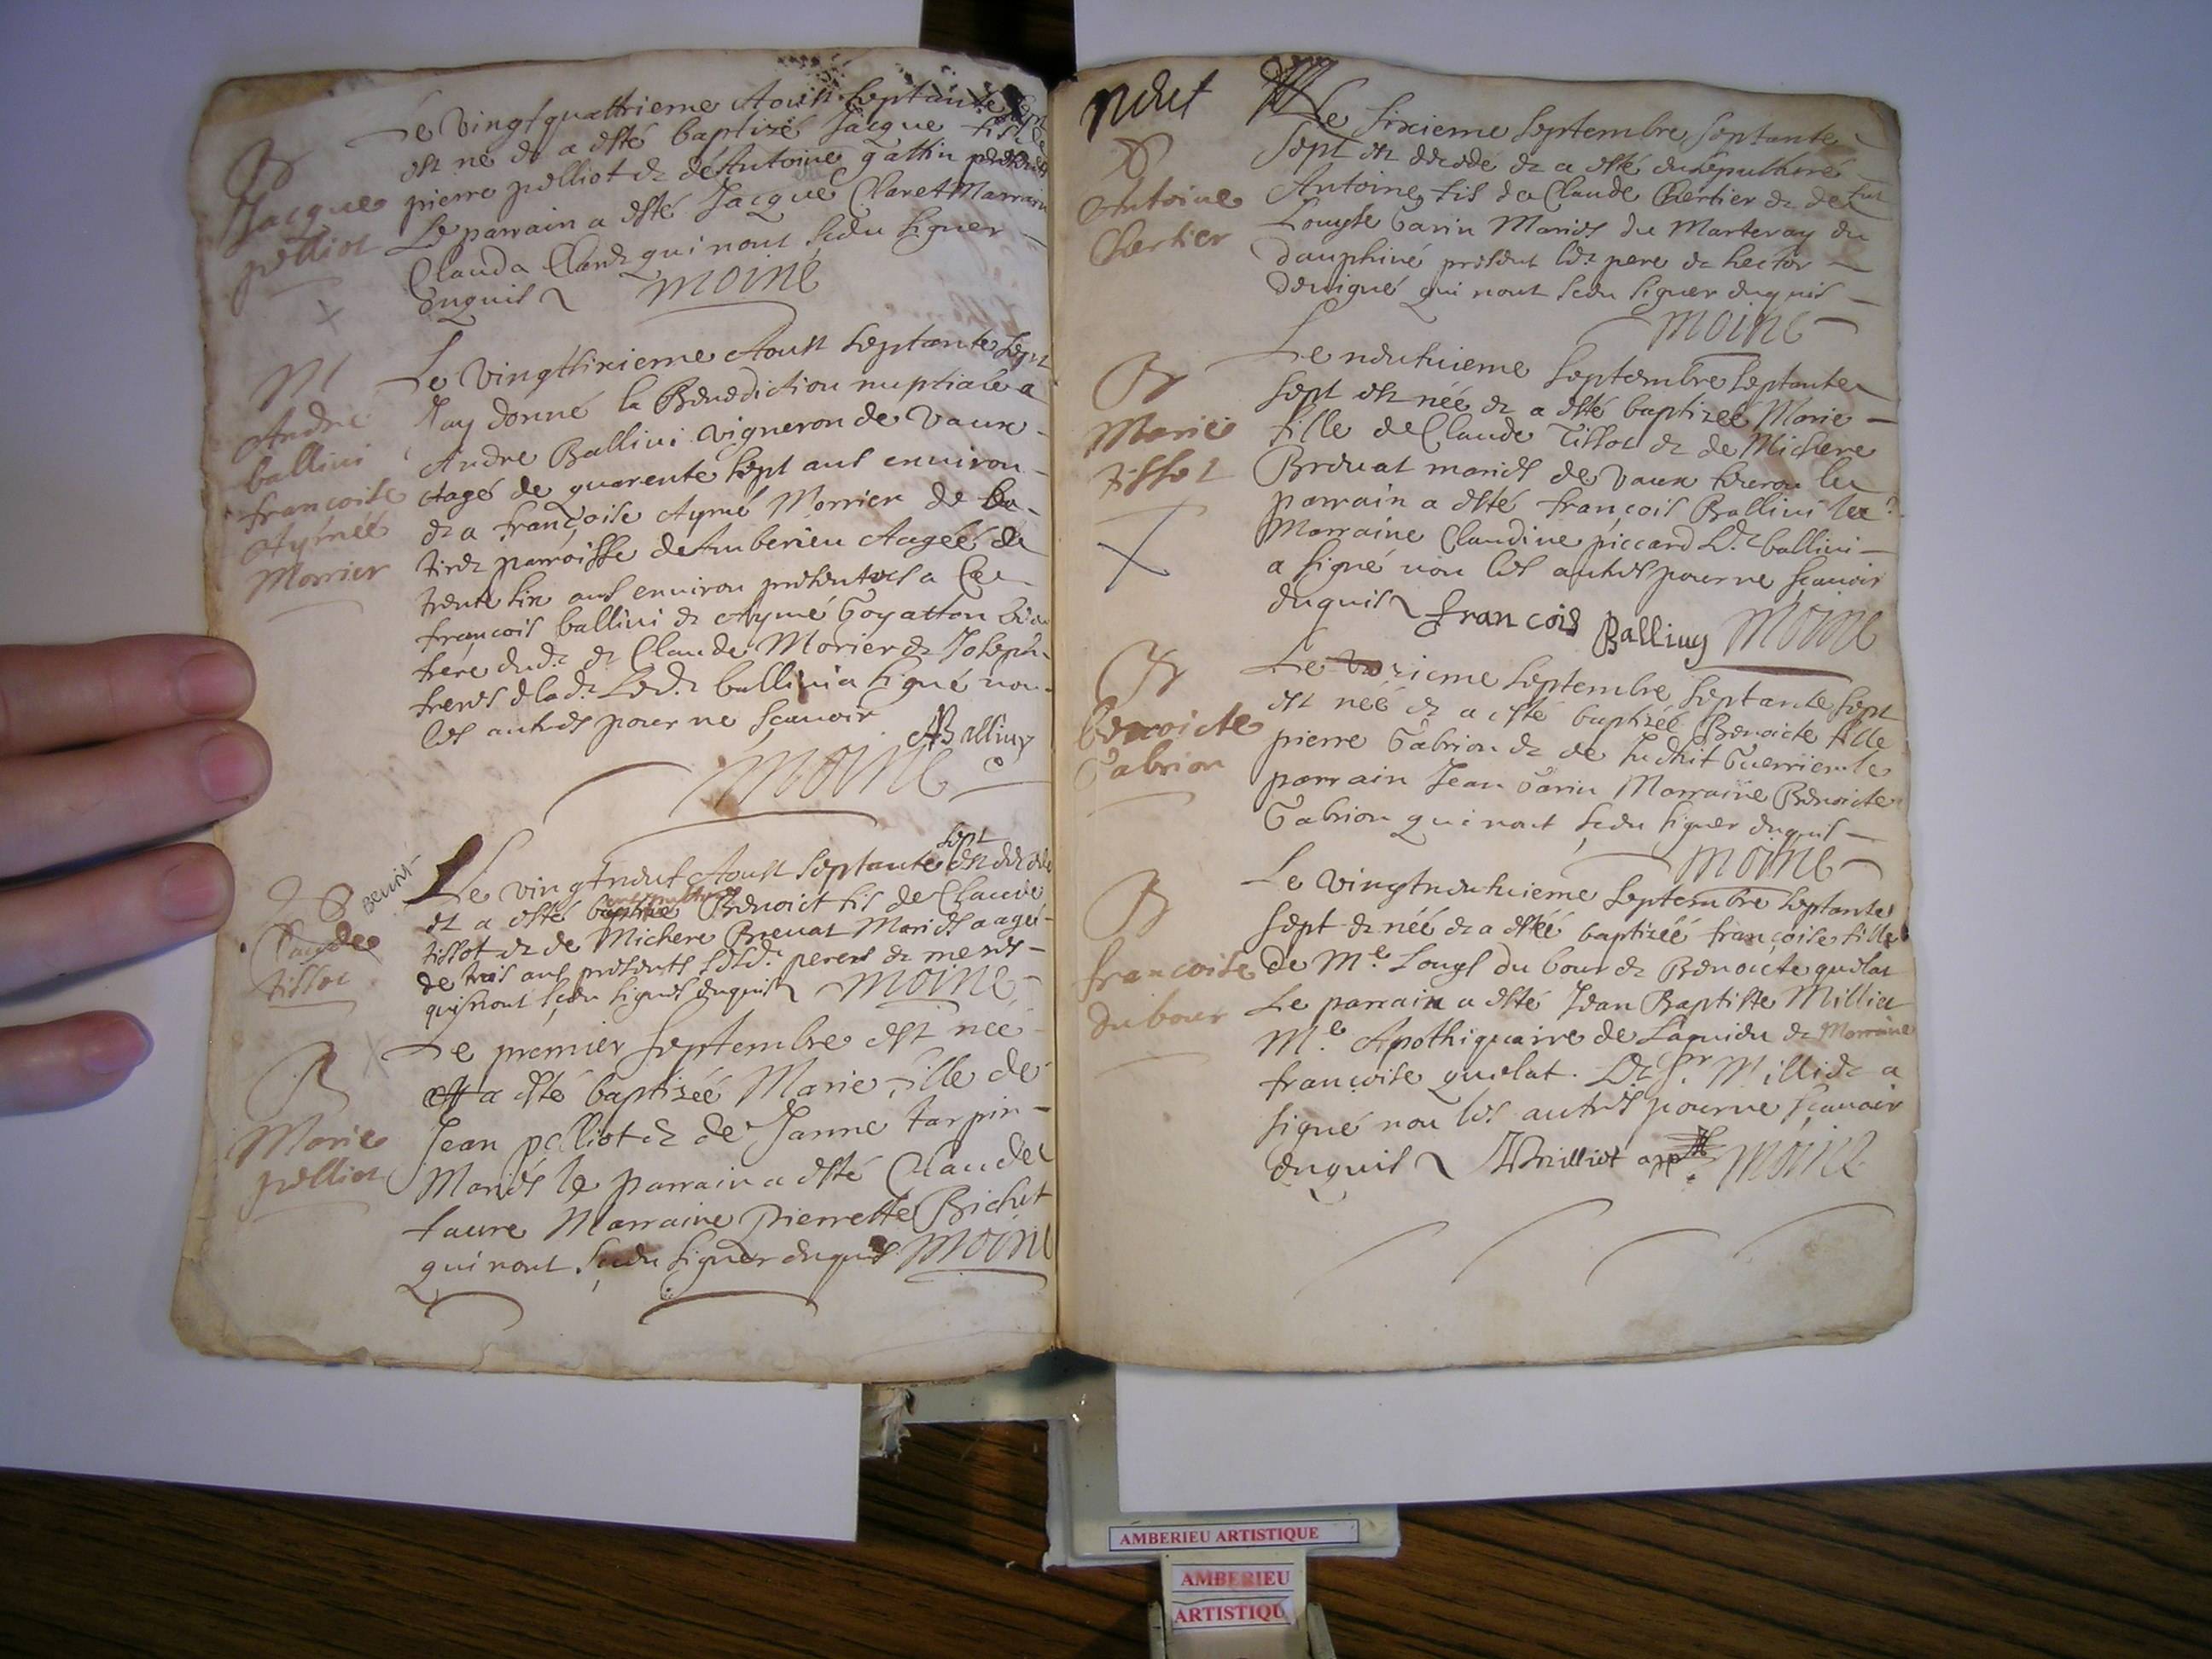 B
Jacque
pelliot
Le vingtquattrieme Aoust septante sept
est né et a esté baptizé Jacque fils
pierre pelliot et de Antoine gattin
Le parrain a esté Jacque Claret Marraine
Clauda Claret qui nont sceu signer
enquis moine
M
André
ballini
francoise
Aymée
Morrier
Le vingtsixieme Aoust septante sept
Jay donné la Benediction nuptiale a
Andre Ballini vigneron de vaux
Aagé de quarente sept ans environ
et a françoise Aymé Morrier de
tiret parroisse de Amberieu Aagée de
trente six ans environ presents a ce
françois ballini et Aymé Goyatton
frere dud. et Claude Morier et Joseph
freres de lad. Led. ballini a signé non
les autres pour ne scavoir ABalliny
moine
S
Benoist
Claude
tissot
Le vingtneuf Aoust septante sept est decede
et a esté Benoict fils de Claude
tissot et de Michere Brevat Mariés aagé
de trois ans presents lesd. peres et meres
qui nont sceu signes enquis moine
B
Marie
pelliot
Le premier septembre est née
et a esté baptizée Marie fille de
Jean pelliot et de Janne tarpin
Mariés le parrain a esté Claude
faure Marraine Pierrette Bichet
qui nont sceu signer enquis moine
neuf
S
Antoine
Chertier
Le sixieme septembre septante
sept est decedé et a esté ensepulturé
Antoine fils de Claude Chertier et de
Louyse Garin Mariés du Marteray du
Dauphiné present led. pere et hector
devigné qui nont sceu signer enquis
moine
B
Marie
tissot
Le neufvieme septembre septante
sept est née et a esté baptizée Marie
fille de Claude Tissot et de Michere
Brevat mariés de vaux fevrou le
parrain a esté françois Ballini la
Marraine Claudine piccard Led. ballini
a signé non les autres pour ne scavoir
enquis francois Balliny moine
B
Benoicte
Gabrion
Le septembre septante sept
est née et a esté baptizée Benoicte fille
pierre Gabrion et de Judhit Guerrier le
parrain Jean Garin Marraine Benoicte
Gabrion qui nont sceu signer enquis
moine
B
francoise
du bour
Le vingtneufvieme septembre septante
sept et née et a estée baptizée françoise fille
de Me Louys du bour et Benoicte quelat
Le parrain a esté Jean Baptiste Milliet
Me Apothiquaire de Laguieu et Marraine
françoise quelat. Led. Sr Milliet a
signé non les autres pour ne scavoir
enquis Milliet moine
AMBERIEU ARTISTIQUE
AMBERIEU
ARTISTIQU